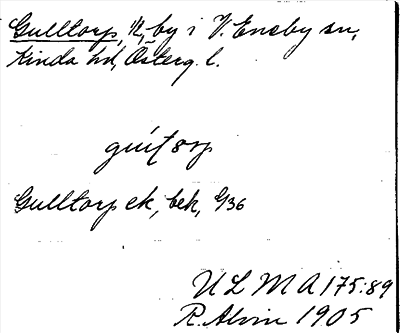 Gulltorp, 1/2, by i V. Eneby sn,
Kinda hd, Österg. l.
Gulltorp ek, bek, 9/36
ULMA 175:89
R. Alvin 1905